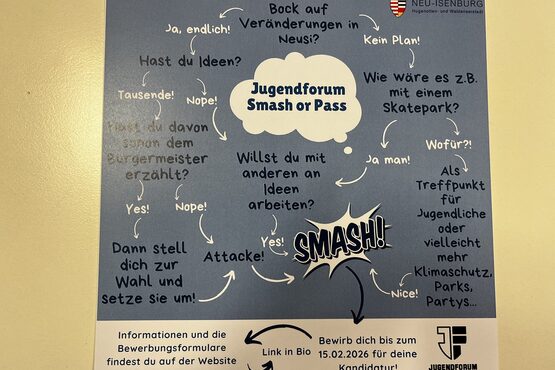 NEU-ISENBURG
Hugenotten- und Waldenserstadt
Bock auf
Veränderungen in
Neusi?
Ja, endlich!
Kein Plan!
Hast du Ideen?
Jugendforum
Smash or Pass
Wie wäre es z.B.
mit einem
Skatepark?
Tausende!
Nope!
Hast du davon
schon dem
Bürgermeister
erzählt?
Willst du mit
anderen an
Ideen
arbeiten?
Ja man!
Wofür?!
Als
Treffpunkt
für
Jugendliche
oder
vielleicht
mehr
Klimaschutz,
Parks,
Partys...
Yes!
Nope!
Dann stell
dich zur
Wahl und
setze sie um!
Attacke!
Yes!
SMASH!
Nice!
Informationen und die
Bewerbungsformulare
findest du auf der Website
Link in Bio
Bewirb dich bis zum
15.02.2026 für deine
Kandidatur!
JF
JUGENDFORUM